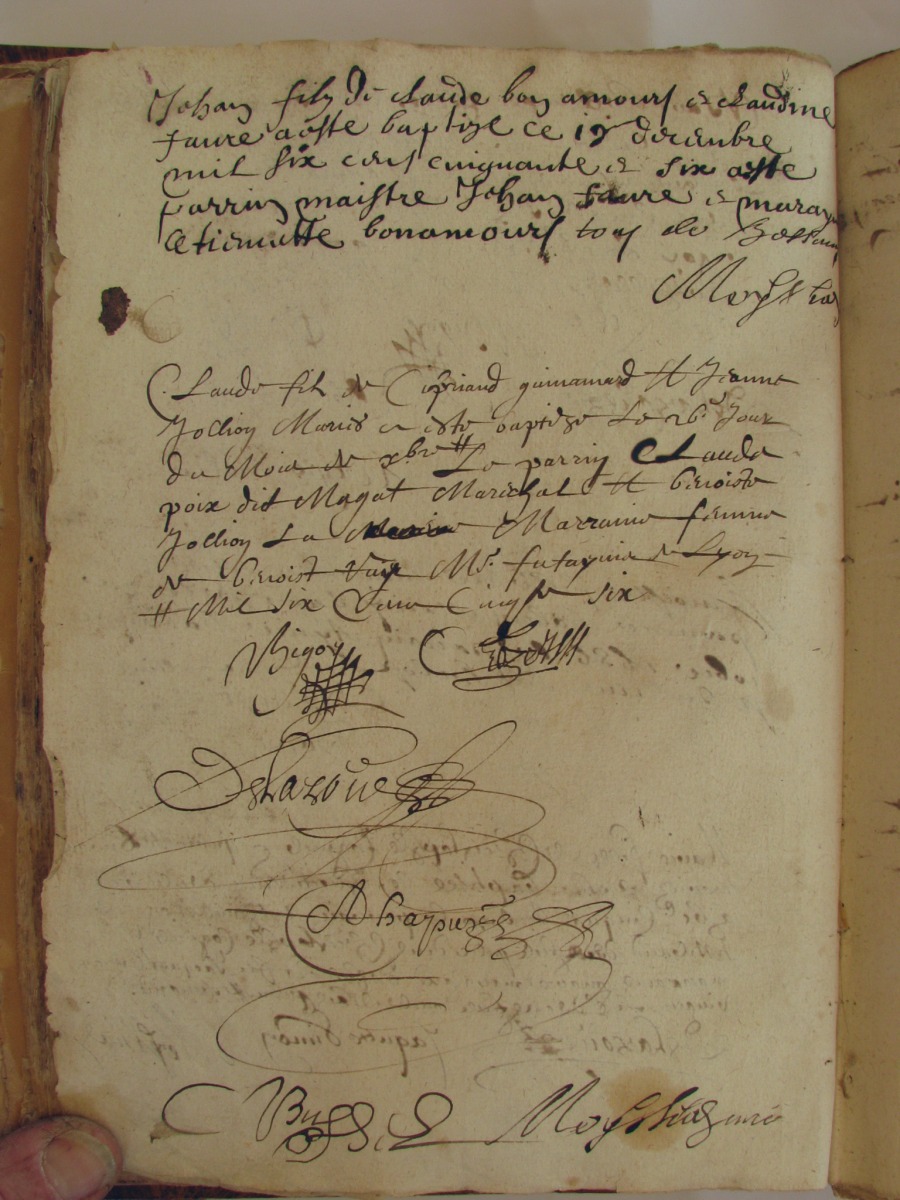 Jehan filz de claude bon amours et claudine
faure a este baptize ce 19 decembre
mil six cens cinquante et six a este
parrin maistre Jehan faure et maray
etiennette bonamours tous de
Claude fils de guinamard et Jeanne
Jollion Mariés a esté baptize Le 26e Jour
du Mois de xbre # Le parrin Claude
poix dit Magat Mareschal Et benoiste
Jollion La Marraine femme
de benoist Mr. futaynie de Lyon
# Mil six Cens Cinqte six
Bigot
Delaroue
Chapuis